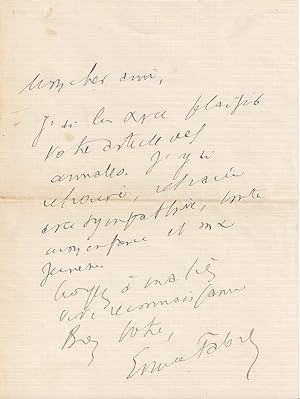 Mon cher ami,
J'ai lu avec plaisir
votre article des
annales. J'y ai
retrouvé, retracée
avec sympathie, toute
mon enfance et ma
jeunesse.
Croyez à ma très
vive reconnaissance
Bien vôtre,
Fabre